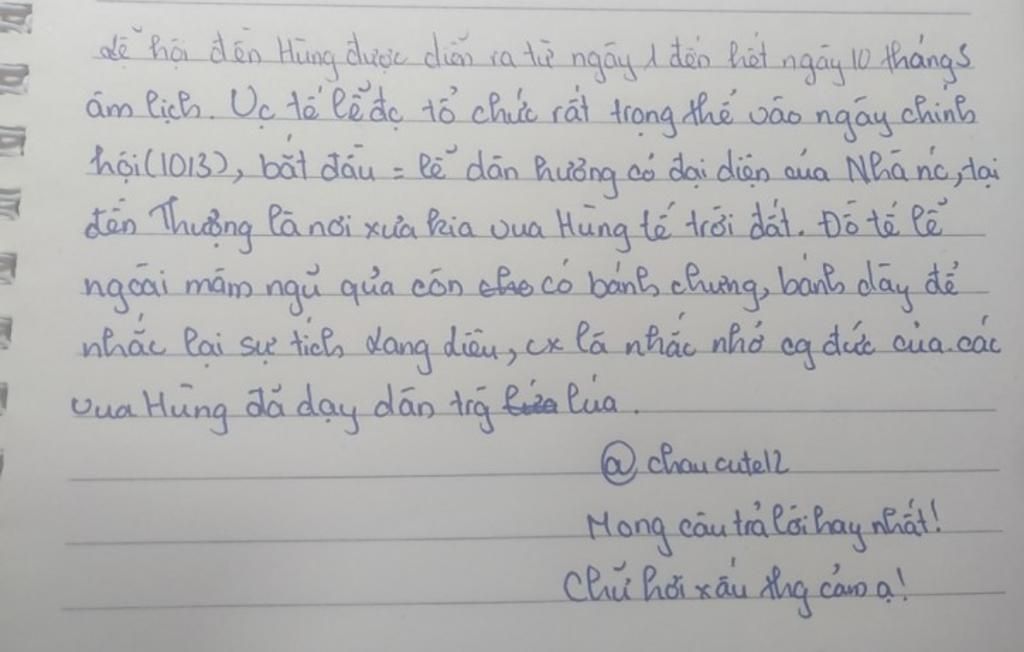 Lễ hội đền Hùng được diễn ra từ ngày 1 đến hết ngày 10 tháng 3
âm lịch. Vc tế lễ đc tổ chức rất trọng thể vào ngày chính
hội (10/3), bắt đầu = lễ dân hương có đại diện của Nhà nc, tại
đền Thượng là nơi xưa kia vua Hùng tế trời đất. Đồ tế lễ
ngoài mâm ngủ quả còn cho có bánh chưng, bánh dày để
nhắc lại sự tích Lang diêu, cx là nhắc nhở cg đức của các
vua Hùng đã dạy dân trg lúa lúa.
@chaucute12
Mong câu trả lời hay nhất!
Chữ hơi xấu thg cảm ạ!